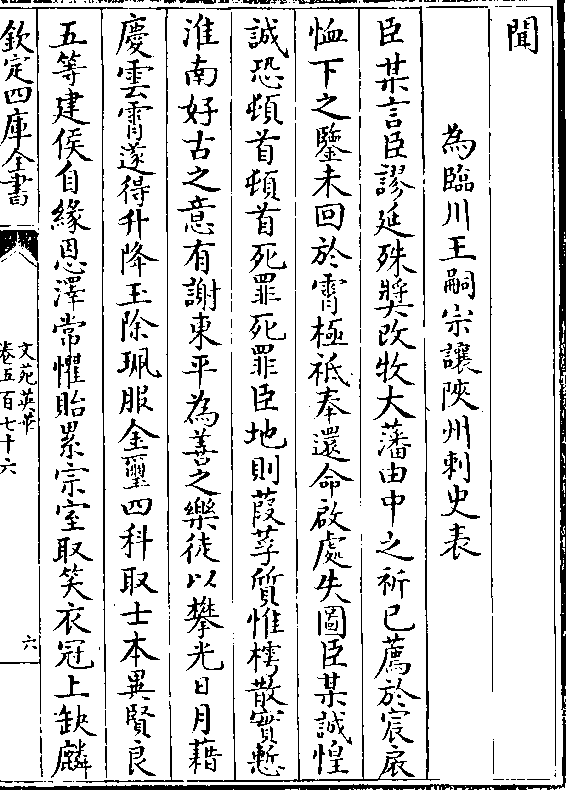 聞
為臨川王嗣宗讓陜州刺史表
臣某言臣謬延殊奬改牧大藩由中之祈已薦於宸扆
恤下之鑒未回於霄極祗奉還命啟處失圖臣某誠惶
誠恐頓首頓首死罪死罪臣地則葭莩質惟樗散實慙
淮南好古之意有謝東平為善之樂徒以攀光日月藉
慶雲霄遂得升降玉除珮服金璽四科取士本異賢良
五等建侯自緣恩澤常懼貽累宗室取笑衣冠上缺麟
欽定四庫全書
文苑英華
卷五百七十六
六